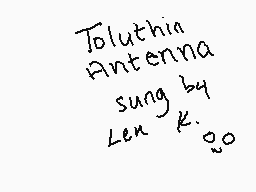 Toluthin
Antenna
sung by
Len K.